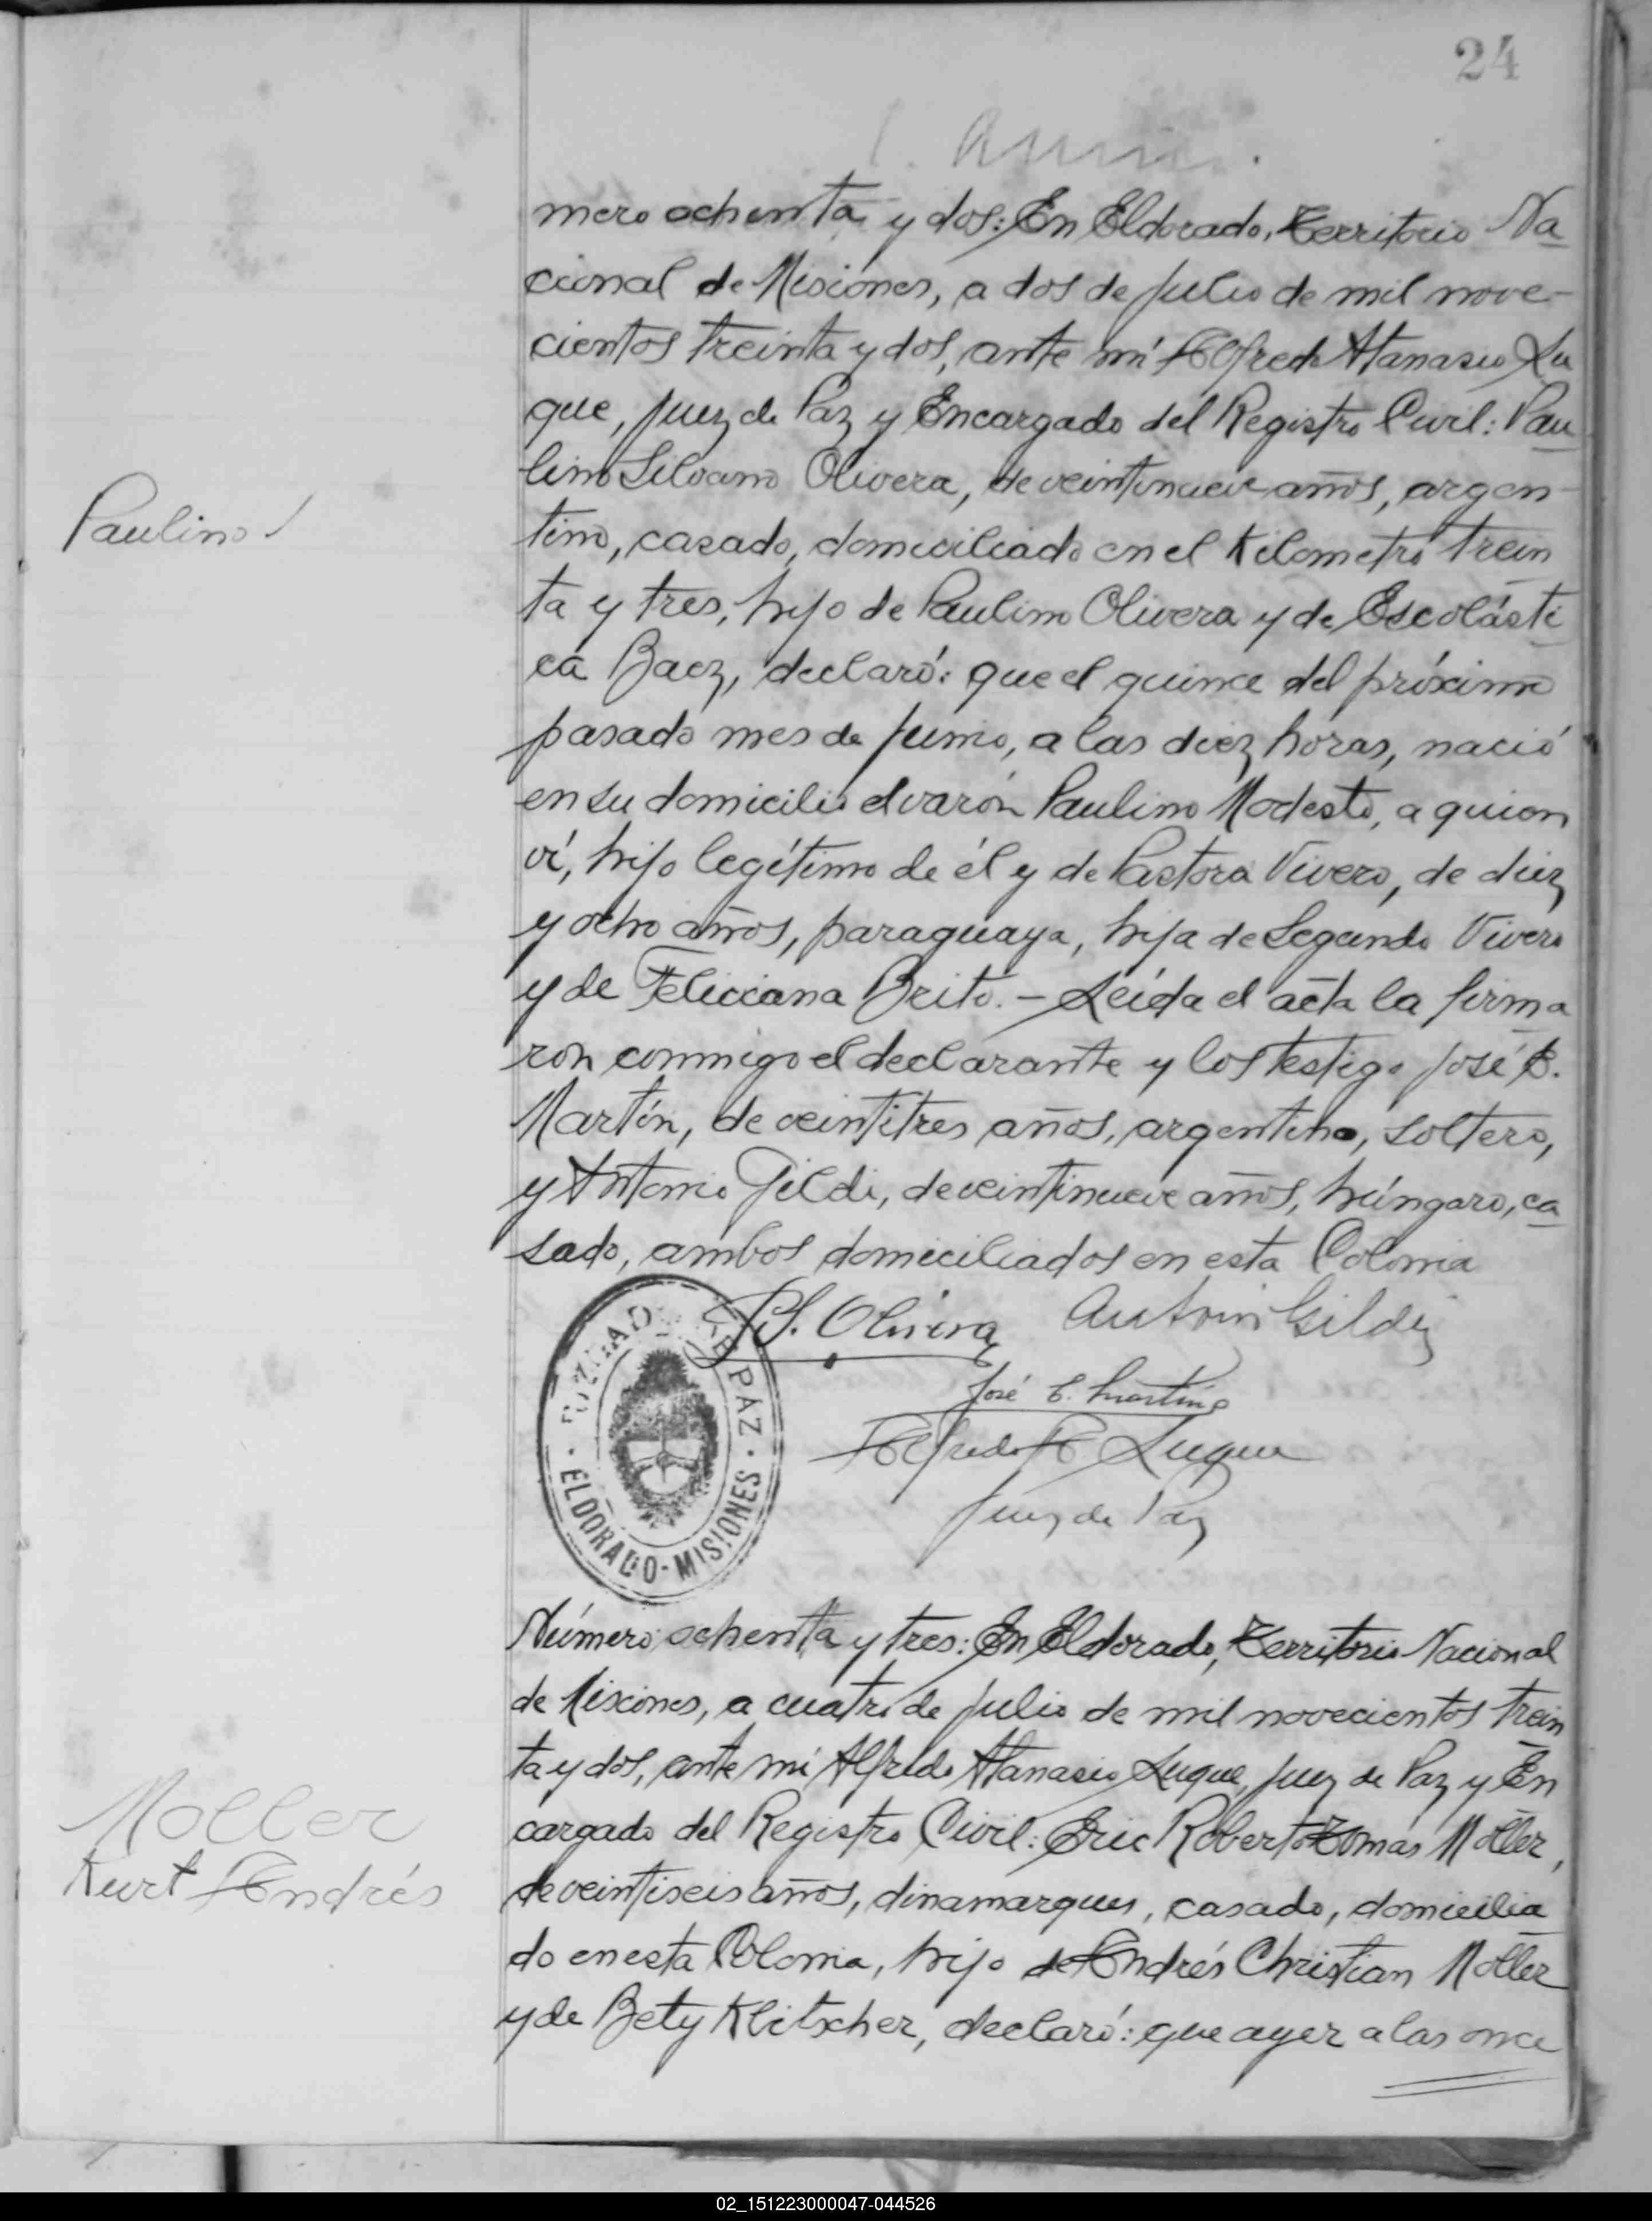 24
mero ochenta y dos: En Eldorado, Territorio Na
cional de Misiones, a dos de julio de mil nove-
cientos treinta y dos, ante mí Alfredo Atanasio Lu
que, Juez de Paz y Encargado del Registro Civil: Pau
lino Silvano Olivera, de veintinueve años, argen-
tino, casado, domiciliado en el Kilometro trein
ta y tres, hijo de Paulino Olivera y de Escolásti
ca Baez, declaró: que el quince del próximo
pasado mes de junio, a las diez horas, nació
en su domicilio el varón Paulino Modesto, a quien
ví, hijo legítimo de él y de Pastora Vivero, de diez
y ocho años, paraguaya, hija de Segundo Vivero
y de Feliciana Brito. - Leída el acta la firma
ron conmigo el declarante y los testigo José E.
Martín, de veintitres años, argentino, soltero,
y Antonio Gildi, de veintinueve años, húngaro, ca
sado, ambos domiciliados en esta Colonia
Paulino
P.S. Olivera Antoni Gildi
José E. Martin
Alfredo A Luque
Juez de Paz
JUZGADO DE PAZ · ELDORADO-MISIONES ·
Número ochenta y tres: En Eldorado, Territorio Nacional
de Misiones, a cuatro de julio de mil novecientos trein
ta y dos, ante mí Alfredo Atanasio Luque, Juez de Paz y En
cargado del Registro Civil: Eric Roberto Tomás Möller,
de veintiseis años, dinamarques, casado, domicilia
do en esta Colonia, hijo de Andrés Christian Möller
y de Bety Klitscher, declaró: que ayer a las once
Moller
Kurt Andrés
02_151223000047-044526